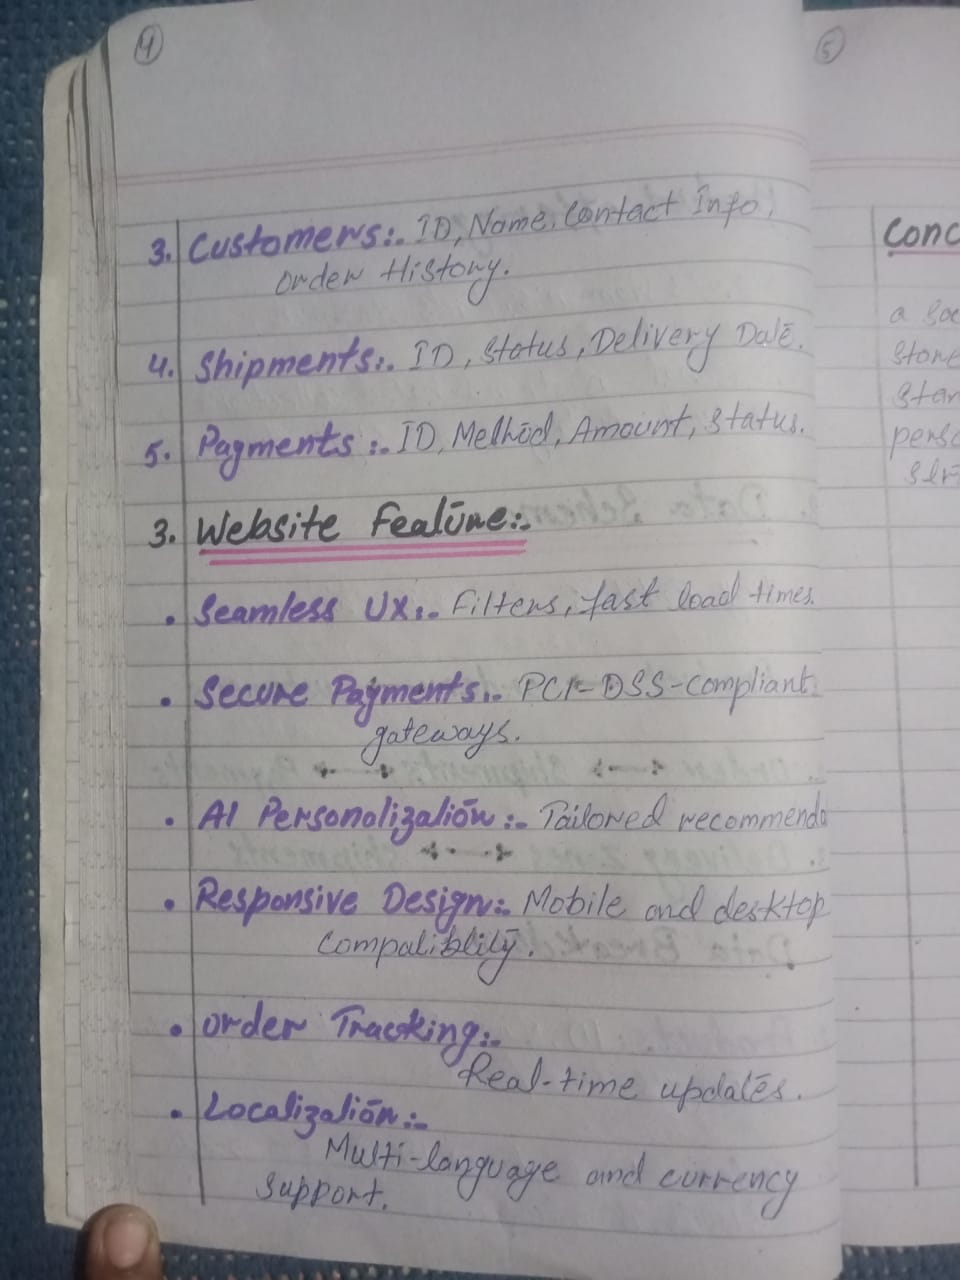 4
3. Customers:. ID, Name, Contact Info,
order History.
4. Shipments:. ID, Status, Delivery Date.
5. Payments :. ID, Method, Amount, Status.
3. Website Feature:.
• Seamless UX:. Filters, fast load times.
• Secure Payments:. PCI-DSS-Compliant
gateways.
• AI Personalization :- Tailored recommenda
• Responsive Design:. Mobile and desktop
Compatiblility.
• order Tracking:-
Real-time updates.
• Localization:-
Multi-language and currency
support.
5
Conc
a
store
star
perso